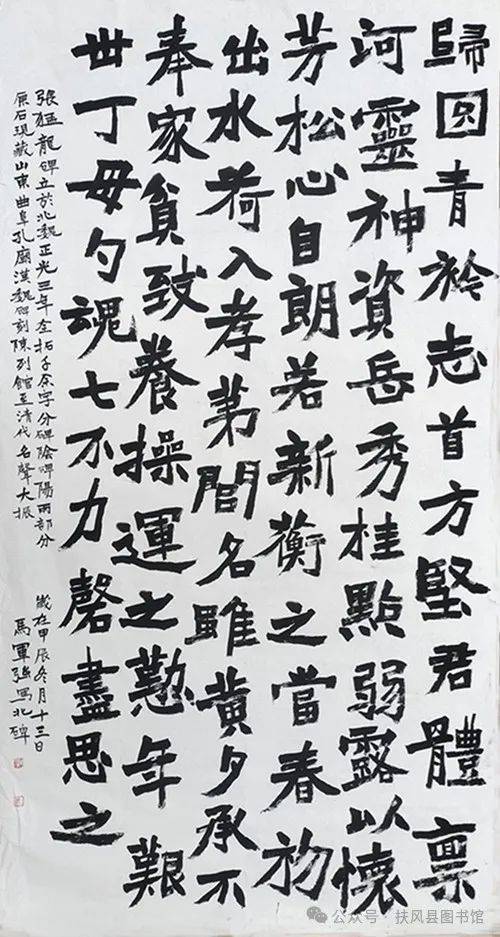 歸回青衿志首方堅君體稟
河靈神資岳秀桂點弱露以懷
芳松心自朗若新蘅之當春初
出水荷入孝弟閭名雖黄夕承不
奉家貧致養操運之懃年艱
丗丁毋勺魂七不力罄盡思之
張猛龍碑立於北魏正光三年全拓千余字分碑陰碑陽兩部分
原石現藏山東曲阜孔廟漢魏碑刻陳列館至清代名聲大振
歲在甲辰冬月十三日
馬軍強寫北碑
公众号·扶风县图书馆